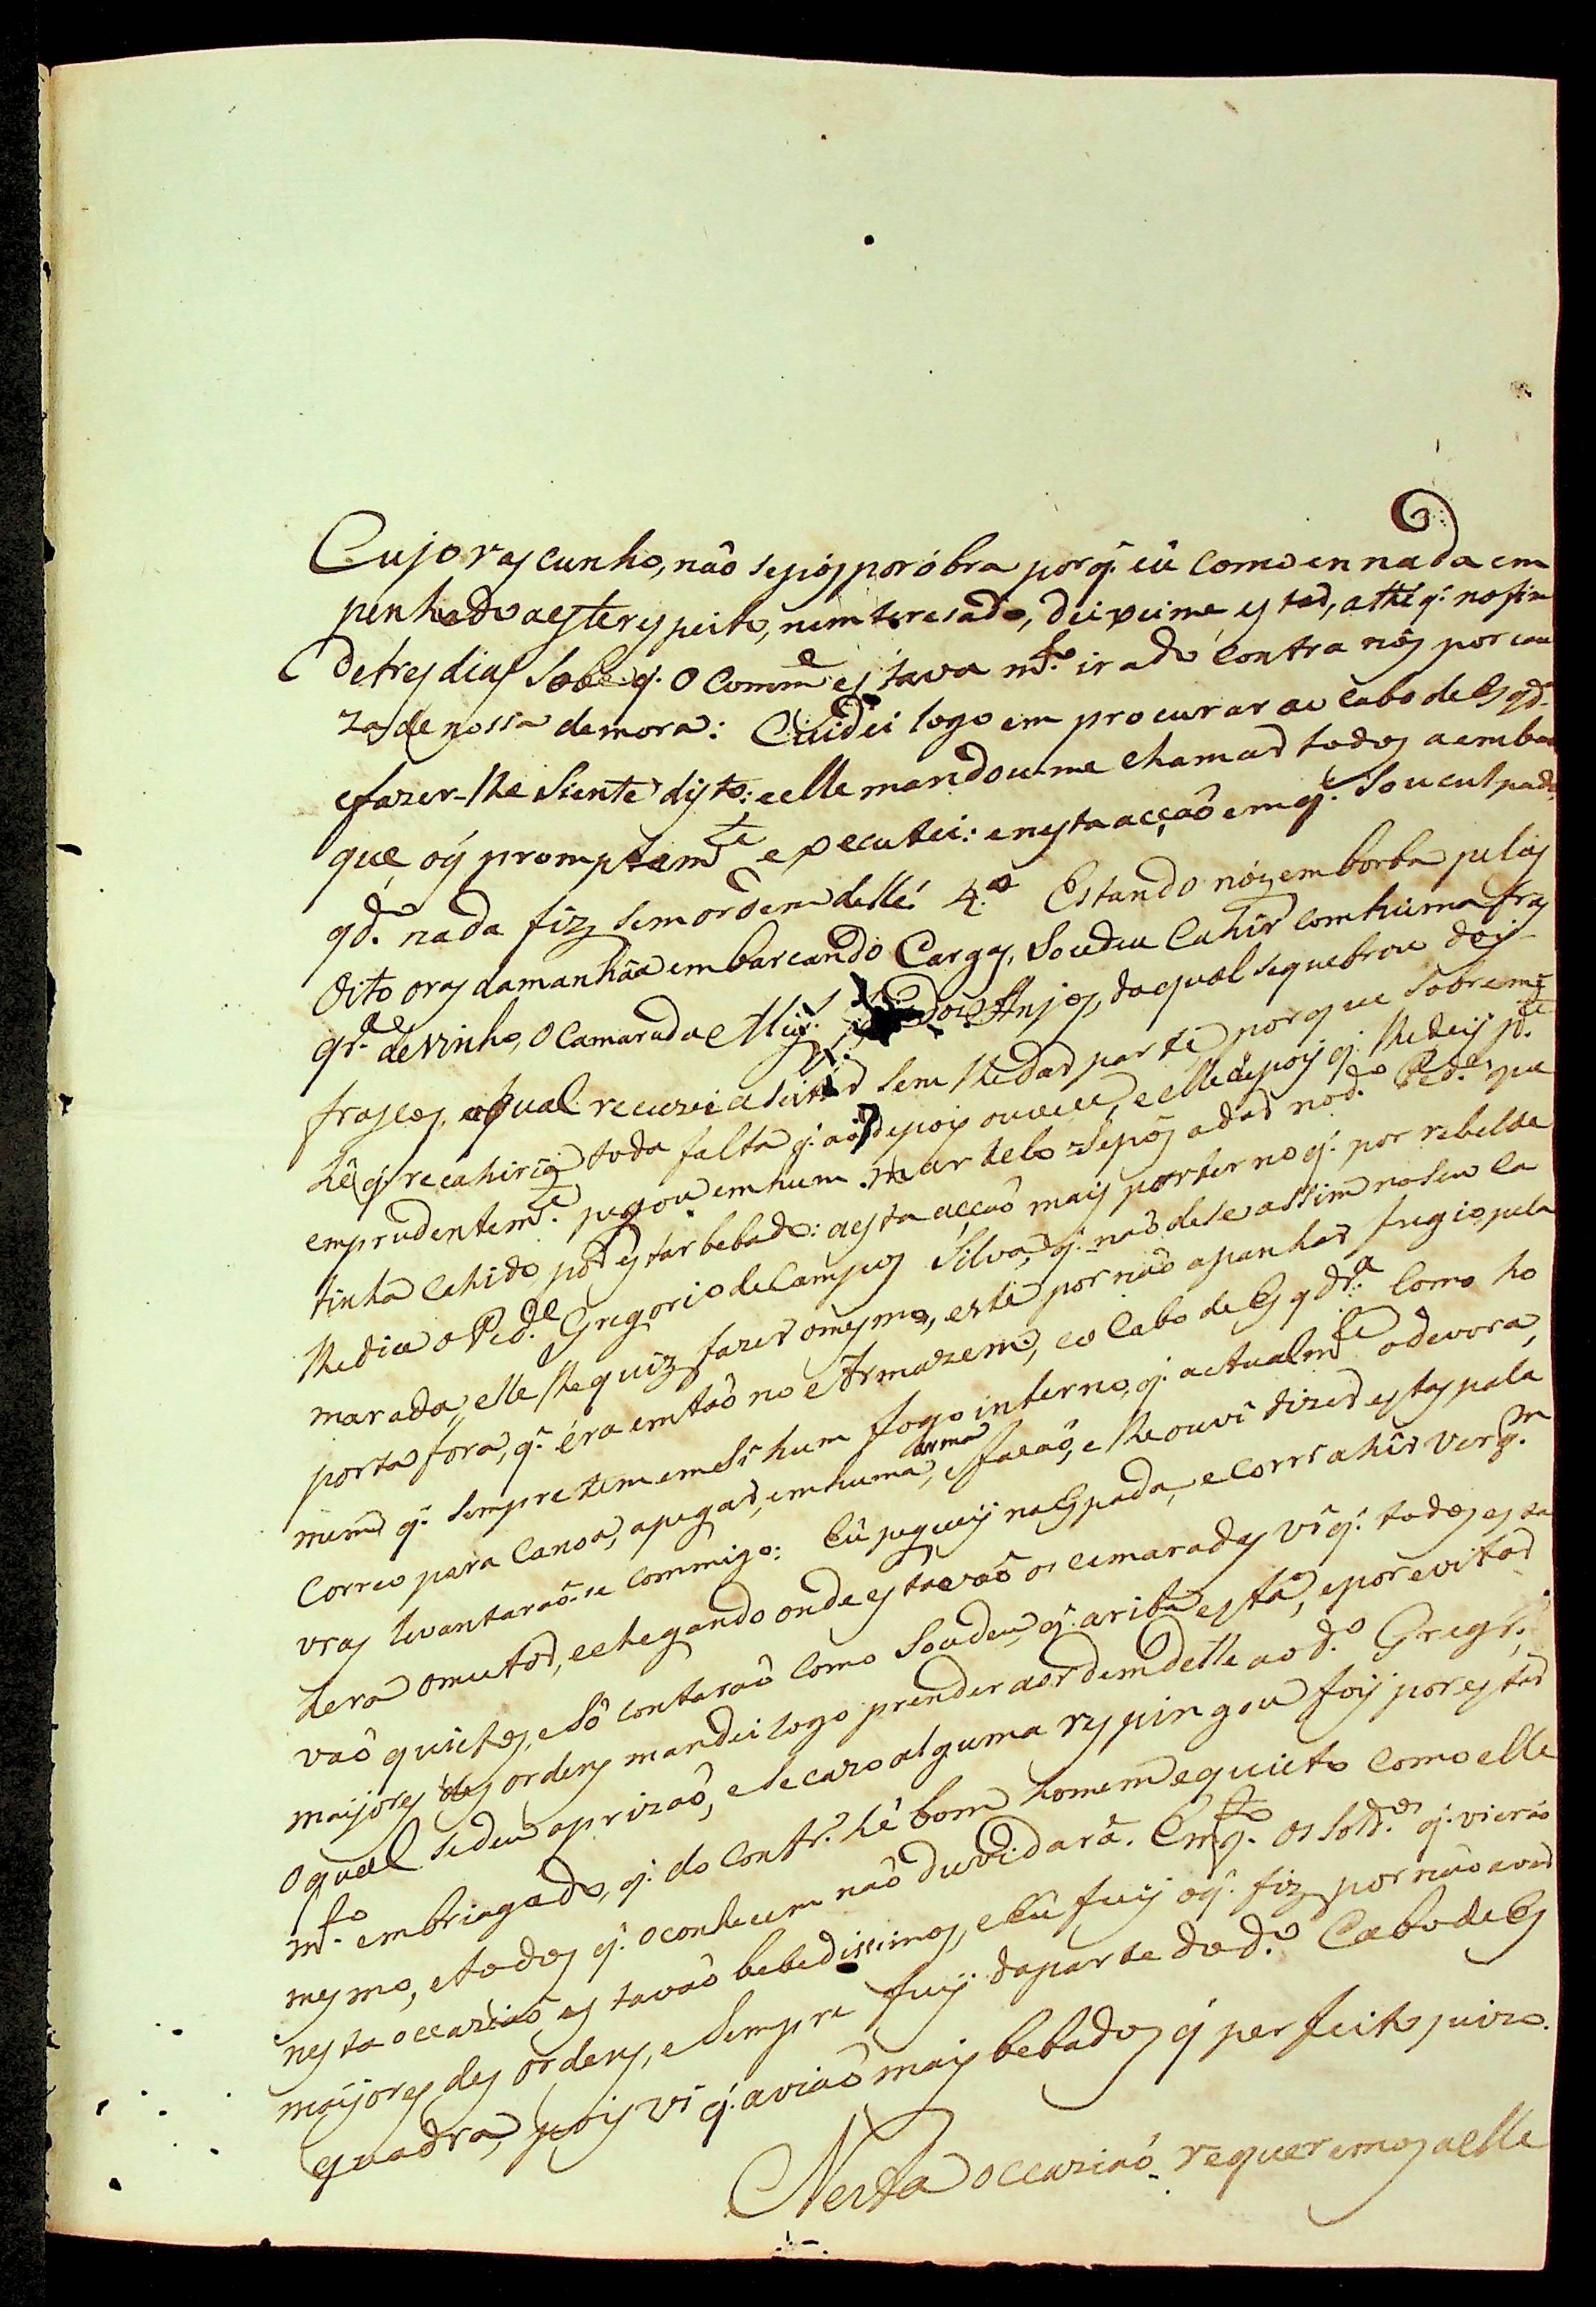 Cujo rascunho, não se pôs por óbra porq̃. eũ como en nada em
penhado a este respeito, nem teresado, deixeime estar, athé q̃. no fim
de tres dias soube q̃. o Comm.e estava m.to irado contra nós por cau
za de nossa demora: Cuidei logo em procurar ao Cabo de Esqd.ª
e fazer-lhe siente disto: e elle mandoume chamar todos a embar
que oý promptam.te executei: e nesta acção em q̃. sou culpado
q.do nada fiz sem ordem delle. 4.º Estando nós em borba pelas
Oito oras da manhãa embarcando Cargas, Soudeu Cahir com huma fras
qr.ª de vinho, o Camarada Mig.l dos Anjos, da qual se quebrou dois
frascos, a qual recuzei aseitar sem lhe dar parte porque sobre m.e
hé q̃. recahiria toda falta q̃. ao depois ouvece, e elle depois q̃. lhe deis p.te
emprudentem.te pegou em hum martelo e se pôs a dar no d.º Ped.e que
tinha cahido por estar bebado: a esta acção mais por ter no q̃. por rebelde
lhe dice o Ped.e Gregorio de Campos Silva, q̃. não dese assim no seu Ca
marada, elle lhe quiz fazer o mesmo, e este por não apanhar fugio pela
porta fora, q̃. éra emtão no Armazem, e o Cabo de Esqdr.ª como ho
mem q̃. sempre tem em si hum fogo interno, q̃. actualm.te o devora,
Correo para Canoa, a pegar, em huma arma, e facaõ, e lhe ouvi dizer estas pala
vras levantarão-se commigo: Eũ pegueis na Espada, e corri a hir ver q.m
hera o mutor, e chegando onde estavaõ os camaradas vi q̃. todos esta
vaõ quietos, e só contaraõ como Soudeu, q̃. ariba está, e por evitar
maijores desordens mandei logo prender a ordem delle ao d.º Greg.º,
o qual se deu a prizaõ, e se cazo alguma respingou foy por estar
m.to embriagado, q̃. do contr.º hé bom homem e quieto como elle
mesmo, e todos q̃. o conhecem naõ duvidará. Emq.to os sold.os q̃. vieraõ
nesta occaziaõ estavaõ bebedissimos, e Eũ fuy oq̃. fiz por naõ aver
maijores desordens, e sempre fuy da parte do d.º Cabo de Es
quadra, pois vi q̃. aviaõ mais bebados q̃ perfeito juizo.
Nesta occaziaõ requeremos a elle